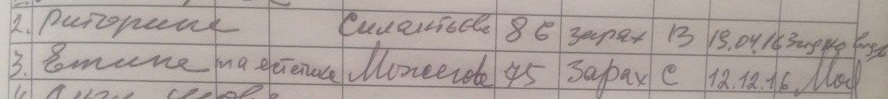 2. Риторика Силантьева 86 зарах В 19.04.16
3. Етика та естетика Можегова 75 Зарах С 12.12.16 Мог
4.